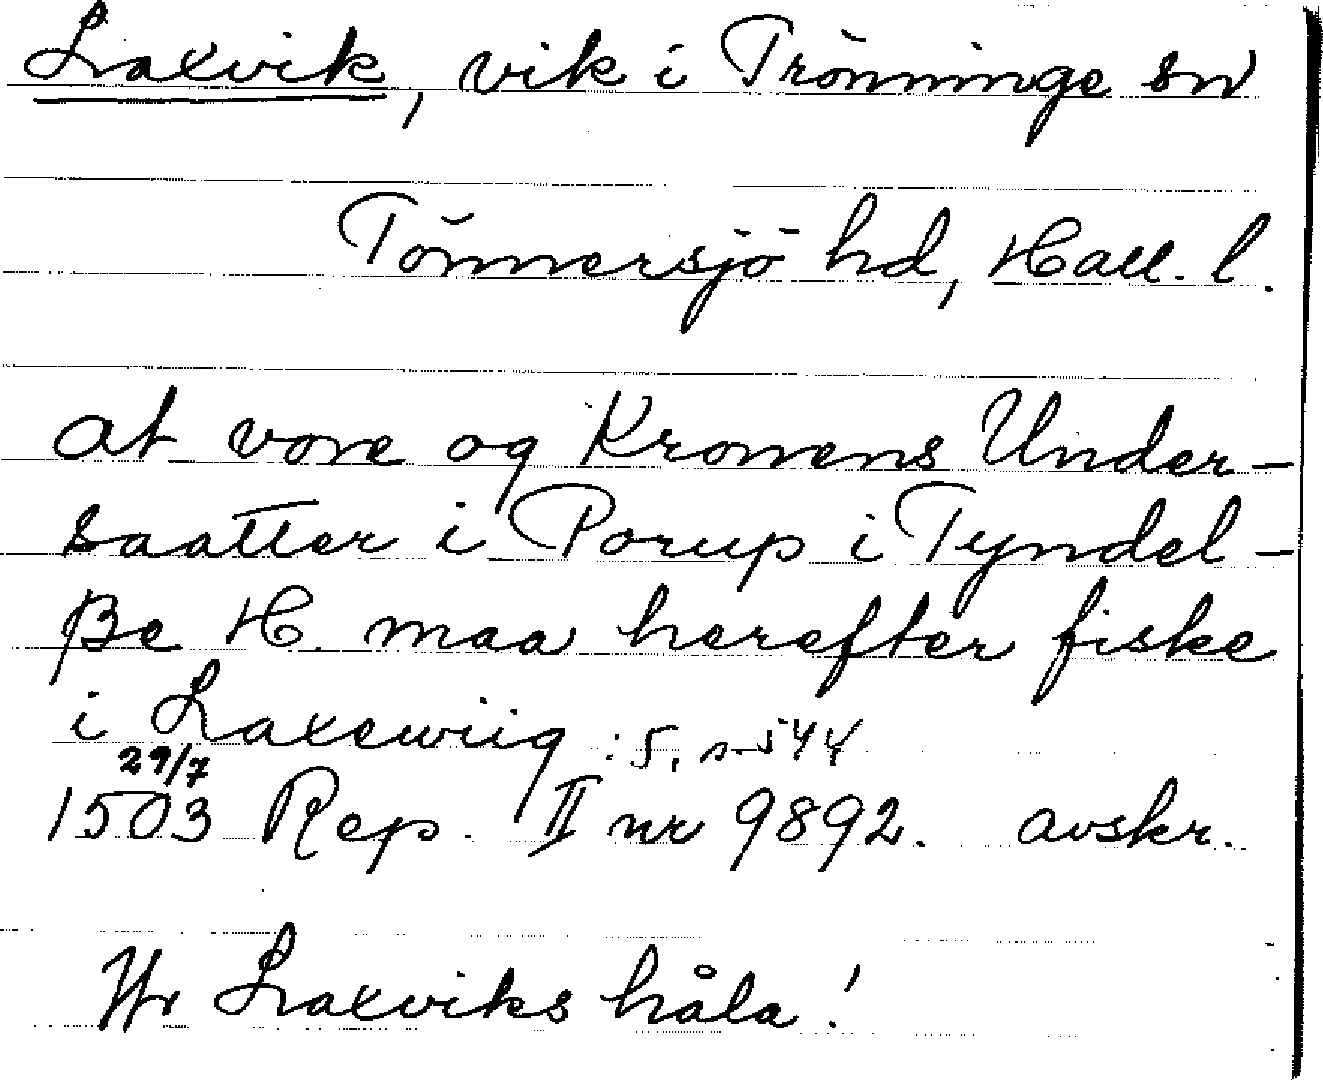 Laxvik, vik i Trönninge sn
Tönnersjö hd, Hall. l.
at vore og Kronens Under-
saatter i Porup i Tyndel-
ße H. maa herefter fiske
i Laxewiig : 5, s. 544
29/7
1503 Rep. II nr 9892. avskr.
Laxviks håla!